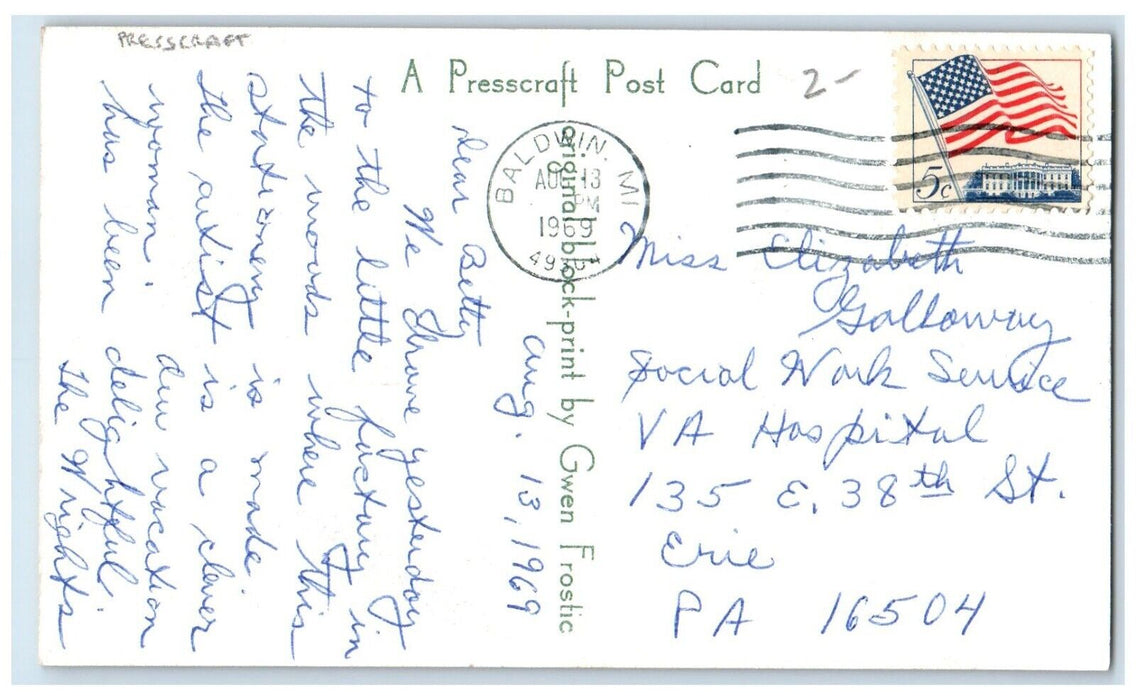 PRESSCRAFT
A Presscraft Post Card
2-
original block-print by Gwen Frostic
BALDWIN, MI
AUG 13
PM
1969
5c
Aug. 13, 1969
Dear Betty
We drove yesterday
to the little factory in
the woods where this
stationery is made.
the artist is a clever
woman. Our vacation
has been delightful.
The Wrights
Miss Elizabeth
Galloway
Social Work Service
VA Hospital
135 E. 38th St.
Erie
PA 16504